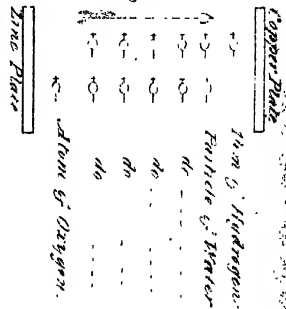 Copper Plate
Atom of Hydrogen.
Particle of Water
do
do
do
do
Atom of Oxygen.
Zinc Plate